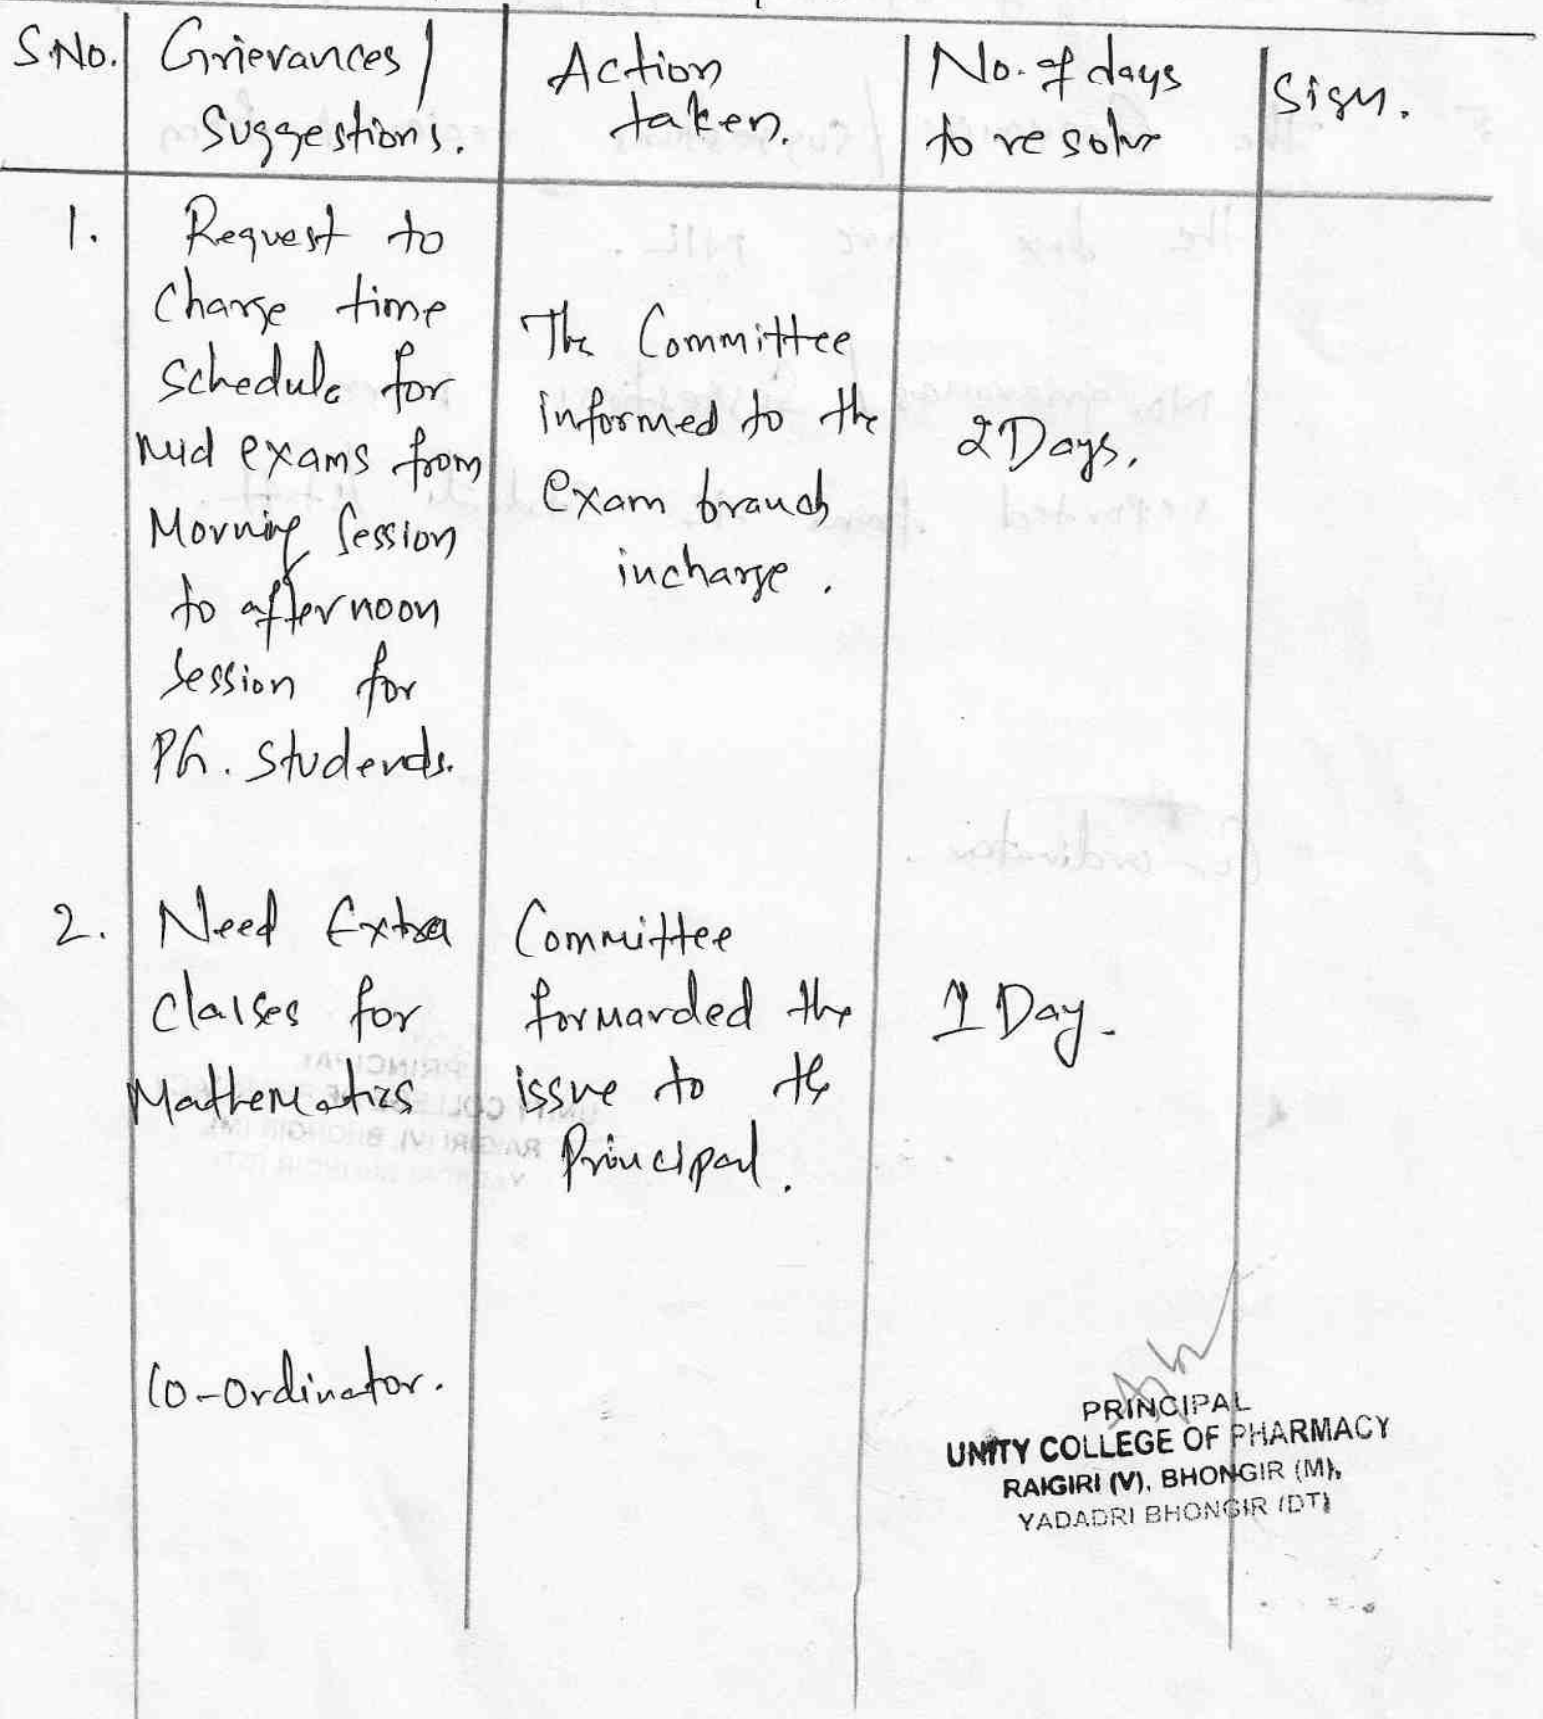 S.No. Grievances/ Suggestions. Action taken. No. of days to resolve Sign.
1.
Request to
Change time
Schedule for
Mid exams from
Morning Session
to afternoon
Session for
PG. Students.
The Committee
informed to the
exam branch
incharge.
2 Days.
2.
Need Extra
classes for
Mathematics
Committee
forwarded the
issue to the
Principal.
1 Day.
Co-ordinator.
PRINCIPAL
UNITY COLLEGE OF PHARMACY
RAIGIRI (V), BHONGIR (M),
YADADRI BHONGIR (DT)